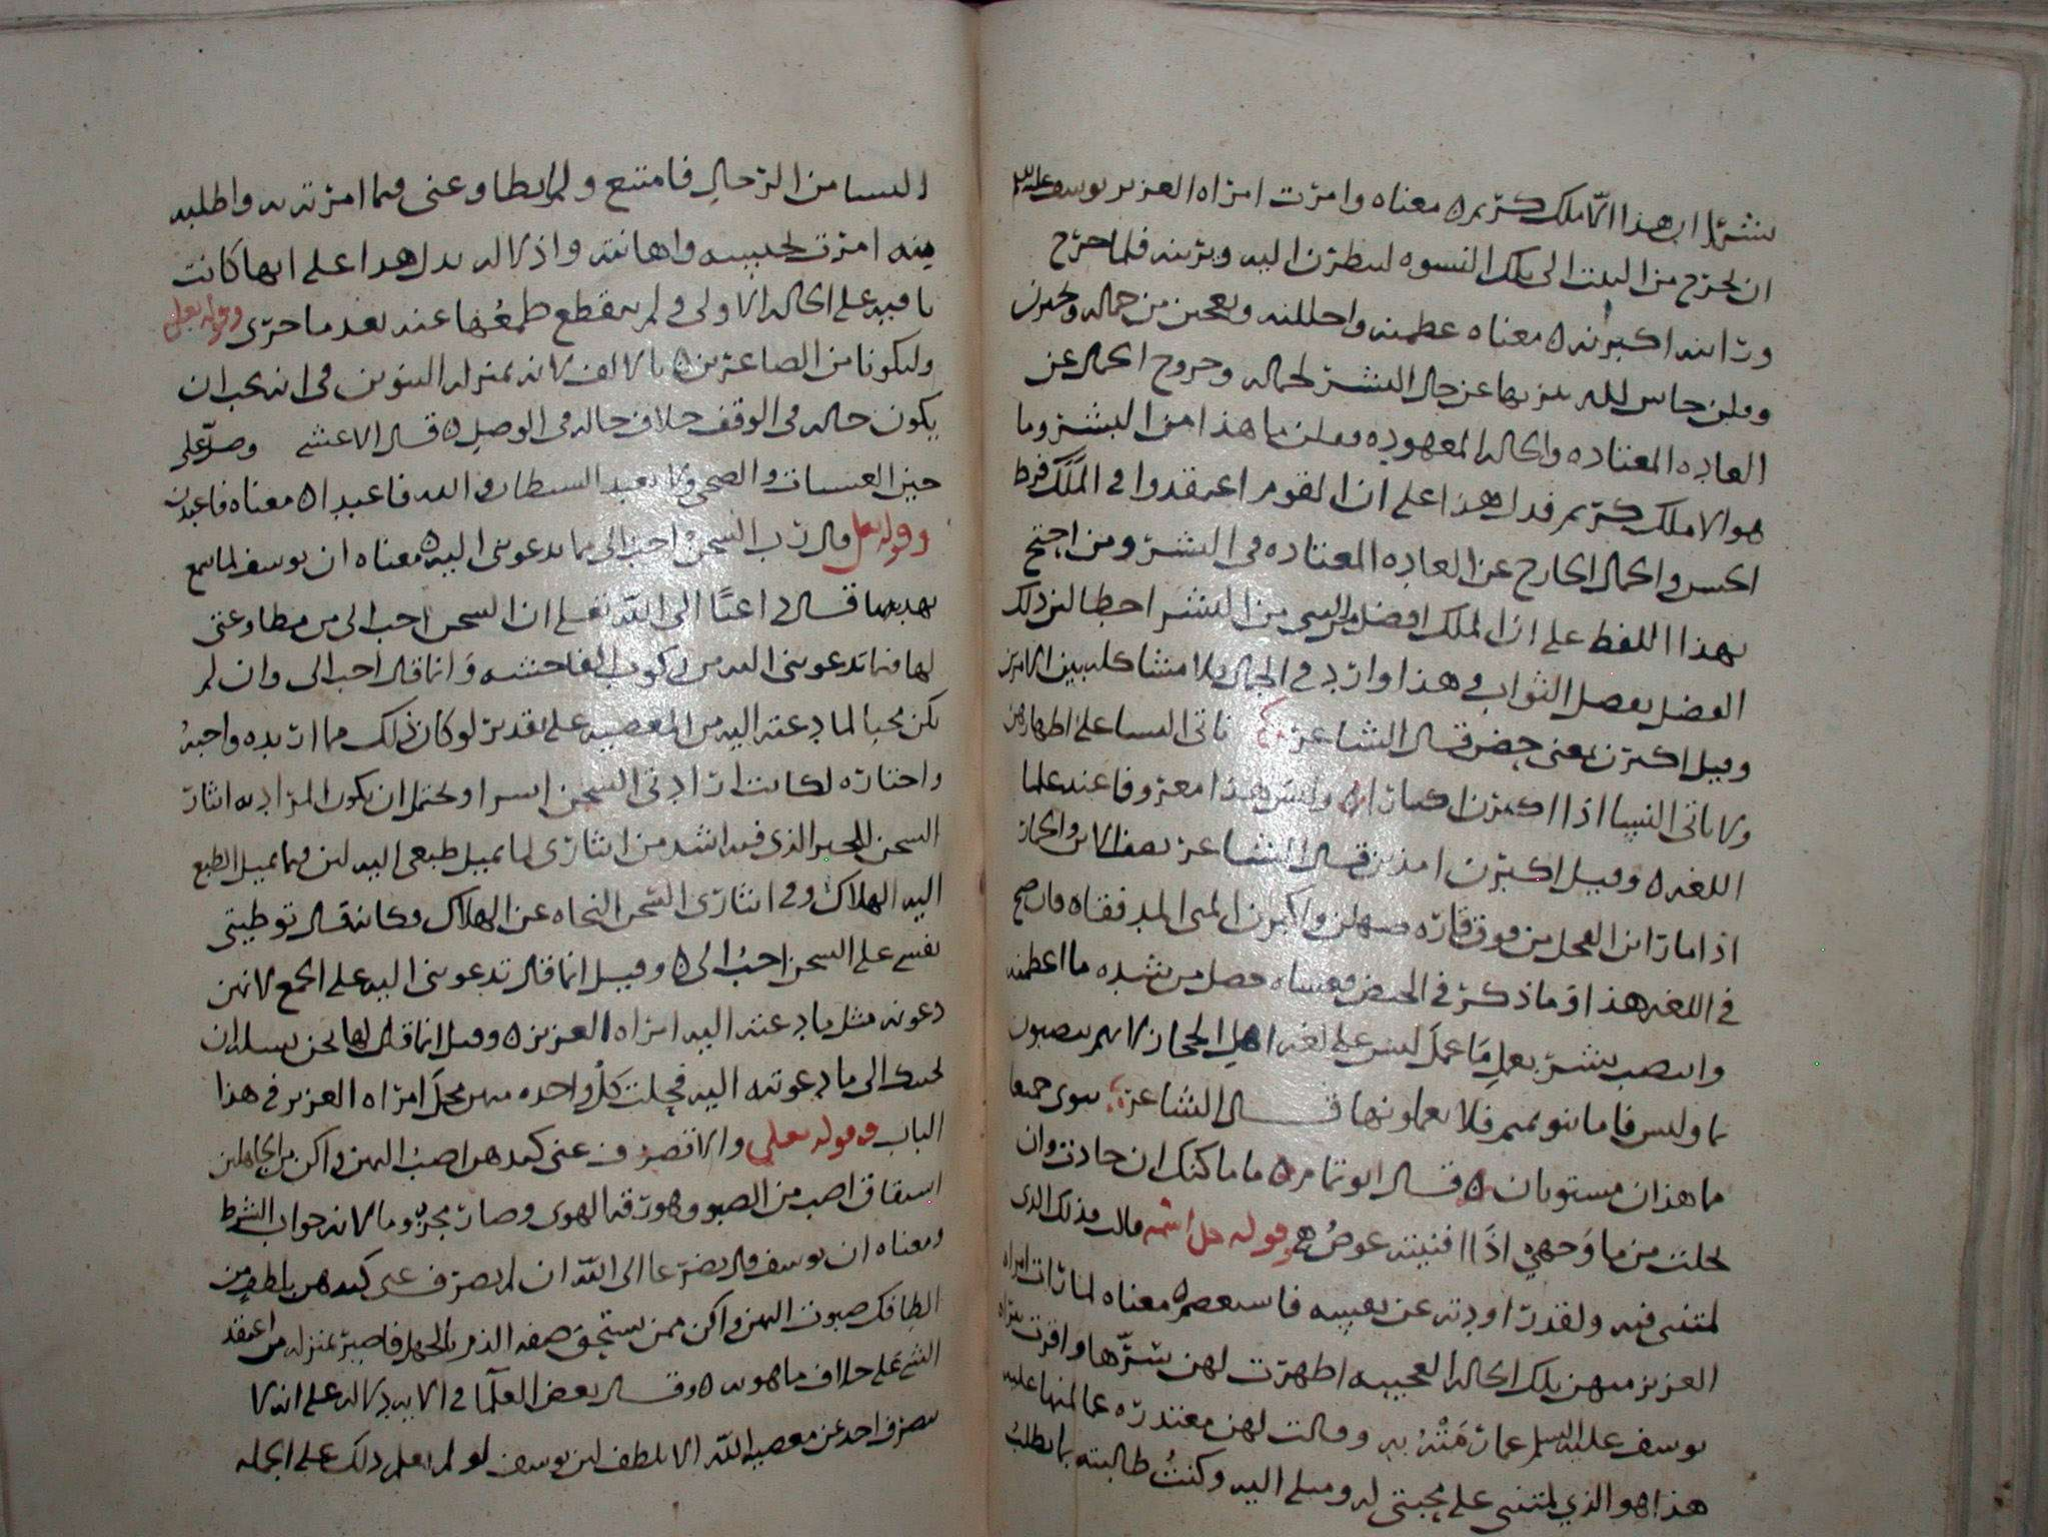 بشرا ان هذا الا ملك كريم ه معناه وامرت امراه العزيز يوسف عليه السلم
ان يخرج من البيت الى تلك النسوه لينظرن اليه ويرينه فلما خرج
وراينه اكبرنه ه معناه عظمنه واجللنه وتعجبن من جماله وتحيرن
وقلن حاش لله تنزيها عن حال البشر لجماله وخروج الجمال عن
العاده المعتاده والحاله المعهوده وقلن ما هذا من البشر وما
هو الا ملك كريم فدل هذا على ان القوم اعتقدوا في الملك فرط
الحسن والجمال الخارج عن العاده المعتاده في البشر ومن احتج
بهذا اللفظ على ان الملك افضل من البشر اخطا لان ذلك
الفضل بفضل الثواب وهذا وارد في الجمال فلا مشاكله بين الامرين
وقيل اكبرن بمعنى حضن قال الشاعر ناتي النسا على اطهارهن
ولا ناتي النسا اذا اكبرن اكبارا ه وليس هذا معروفا عند علما
اللغه ه وقيل اكبرن امذين قال الشاعر
اذا ما راين الفحل من فوق قاره صهلن واكبرن المنى المدفقا ه فان صح
في اللغه هذا او ما ذكر في الحيض فمعناه حصل من شده ما اعظمنه
وانتصب بشر بعمل ما عمل ليس على لغه اهل الحجاز لانهم ينصبون
بما وليس فاما بنو تميم فلا يعملونها قال الشاعر سوى جمعا
ما هذان مستويان ه قال ابو تمام ه ما ماكنك ان جادت وان
بخلت من ما وجهي اذا افنيته عوض ه قوله جل اسمه قالت فذلكن الذي
لمتنني فيه ولقد راودته عن نفسه فاستعصم ه معناه لما رات امراه
العزيز منهن تلك الحاله العجيبه اظهرت لهن سرها واقرت ببراه
يوسف عليه السلم عما رمته به وقالت لهن معتذره عما لمنها عليه
هذا هو الذي لمتنني على محبتي له وميلي اليه وكنت طالبته بما يطلب
النسا من الرجال فامتنع ولم يطاوعني فيما امرته به واطلبه
منه امرت بحبسه واهانته واذلاله يدل هذا على انها كانت
باقيه على الحاله الاولى ولم ينقطع طمعها عنه بعد ما جرى وقوله تعلى
وليكونا من الصاغرين ه بالالف لانه بمنزله التنوين في انه يجب ان
يكون حاله في الوقف خلاف حاله في الوصل ه قال الاعشى وصل على
حين العشيات والضحى ولا تعبد الشيطان والله فاعبدا ه معناه فاعبدن
وقوله تعلى قال رب السجن احب الي مما يدعونني اليه ه معناه ان يوسف لما سمع
تهديدها قال داعيا الى الله تعلى ان السجن احب الي من مطاوعتي
لها فيما تدعونني اليه من ركوب الفاحشه وانما قال احب الي وان لم
يكن محبا لما دعته اليه من المعصيه على تقدير لو كان ذلك مما اريده واحبه
واختاره لكانت ارادتي السجن اسر ويحتمل ان يكون المراد به ايثار
السجن للخير الذي فيه اشد من ايثاري لما يميل طبعي اليه لان فيما يميل الطبع
اليه الهلاك وفي ايثاري السجن النجاه عن الهلاك وكانه قال توطيني
نفسي على السجن احب الي ه وقيل انما قال تدعونني اليه على الجمع لانهن
دعونه مثل ما دعته اليه امراه العزيز ه وقيل انما قلن لها نحن نساله ان
يجيبك الى ما دعوته اليه فخلت كل واحده منهن محل امراه العزيز في هذا
الباب وقوله تعلى والا تصرف عني كيدهن اصب اليهن واكن من الجاهلين
اشتقاق اصب من الصبو وهو رقه الهوى وصار مجزوما لانه جواب الشرط
ومعناه ان يوسف قال تضرعا الى الله ان لم تصرف عني كيدهن بلطف من
الطافك صبوت اليهن واكن ممن يستحق صفه الذم بالجهل فاصير بمنزله من اعتقد
الشي على خلاف ما هو به ه وقال بعض العلما في الايه دلاله على انه لا
ينصرف احد عن معصيه الله الا بلطف لان يوسف لو لم يعلم ذلك على الجمله